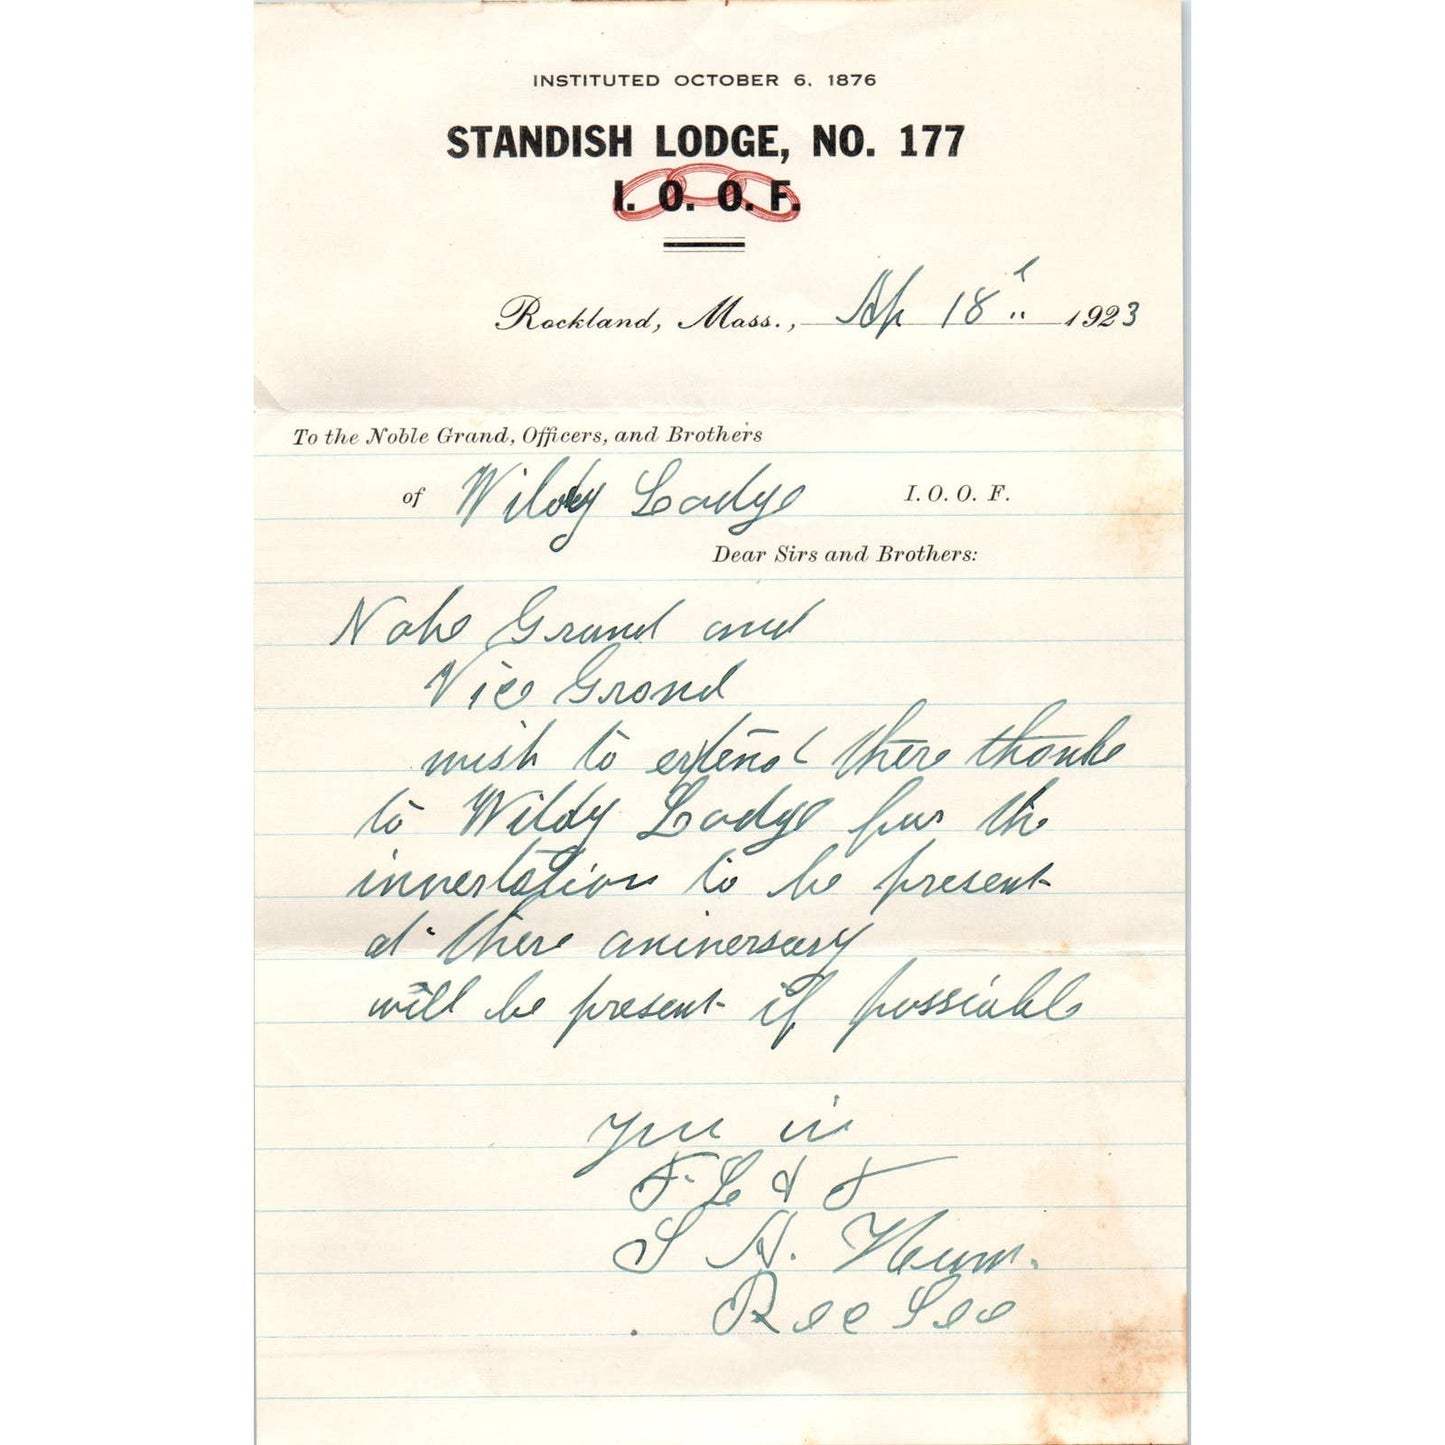 INSTITUTED OCTOBER 6, 1876
STANDISH LODGE, NO. 177
I. O. O. F.
Rockland, Mass., Ap 18 1923
To the Noble Grand, Officers, and Brothers
of Wildy Lodge I. O. O. F.
Dear Sirs and Brothers:
Noble Grand and
Vice Grand
wish to extend there thanks
to Wildy Lodge for the
invertation to be present
at there aniversary
will be present if possiable
your in
F. L & T
S A.
Rec Sec